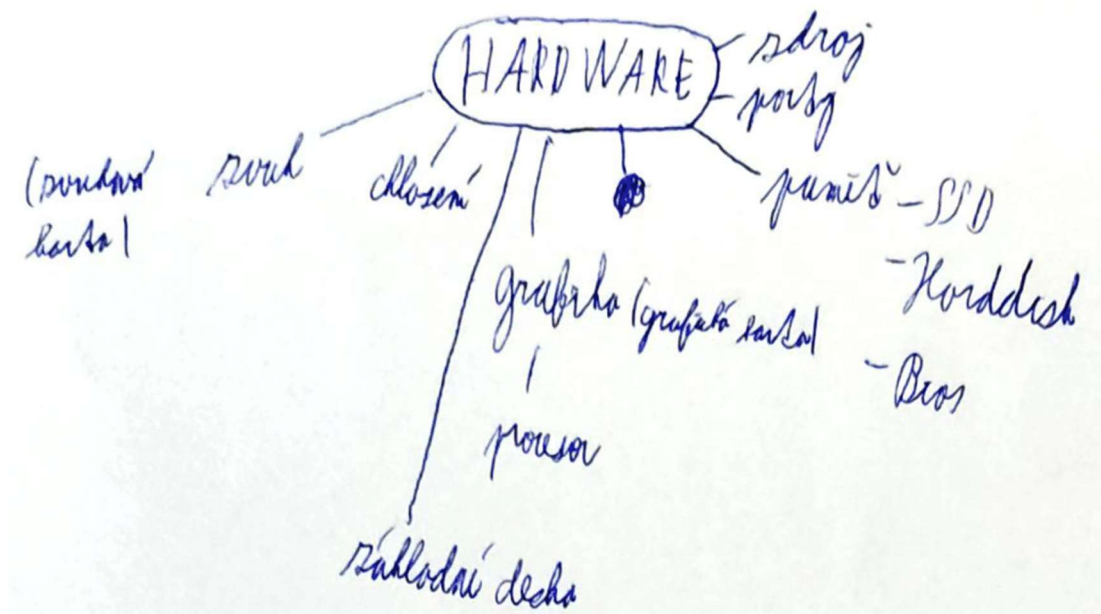 HARDWARE
zdroj
porty
zvuk (zvuková
karta)
chlazení
paměť - SSD
- Harddisk
- Bios
grafika (grafická karta)
procesor
základní deska